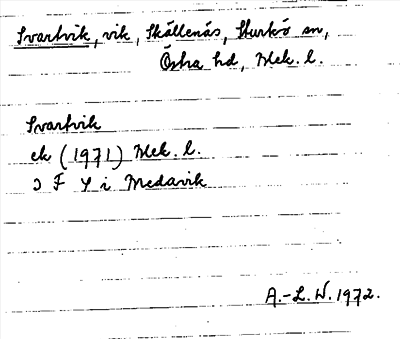 Svartvik, vik, Skällenäs, Sturkö sn,
Östra hd, Blek. l.
Svartvik
ek (1971) Blek. l.
Ɔ F Y i Medavik
A.-L. W. 1972.